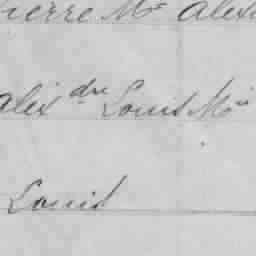 Pierre Me alex
alexdre Louis Mie
Louis